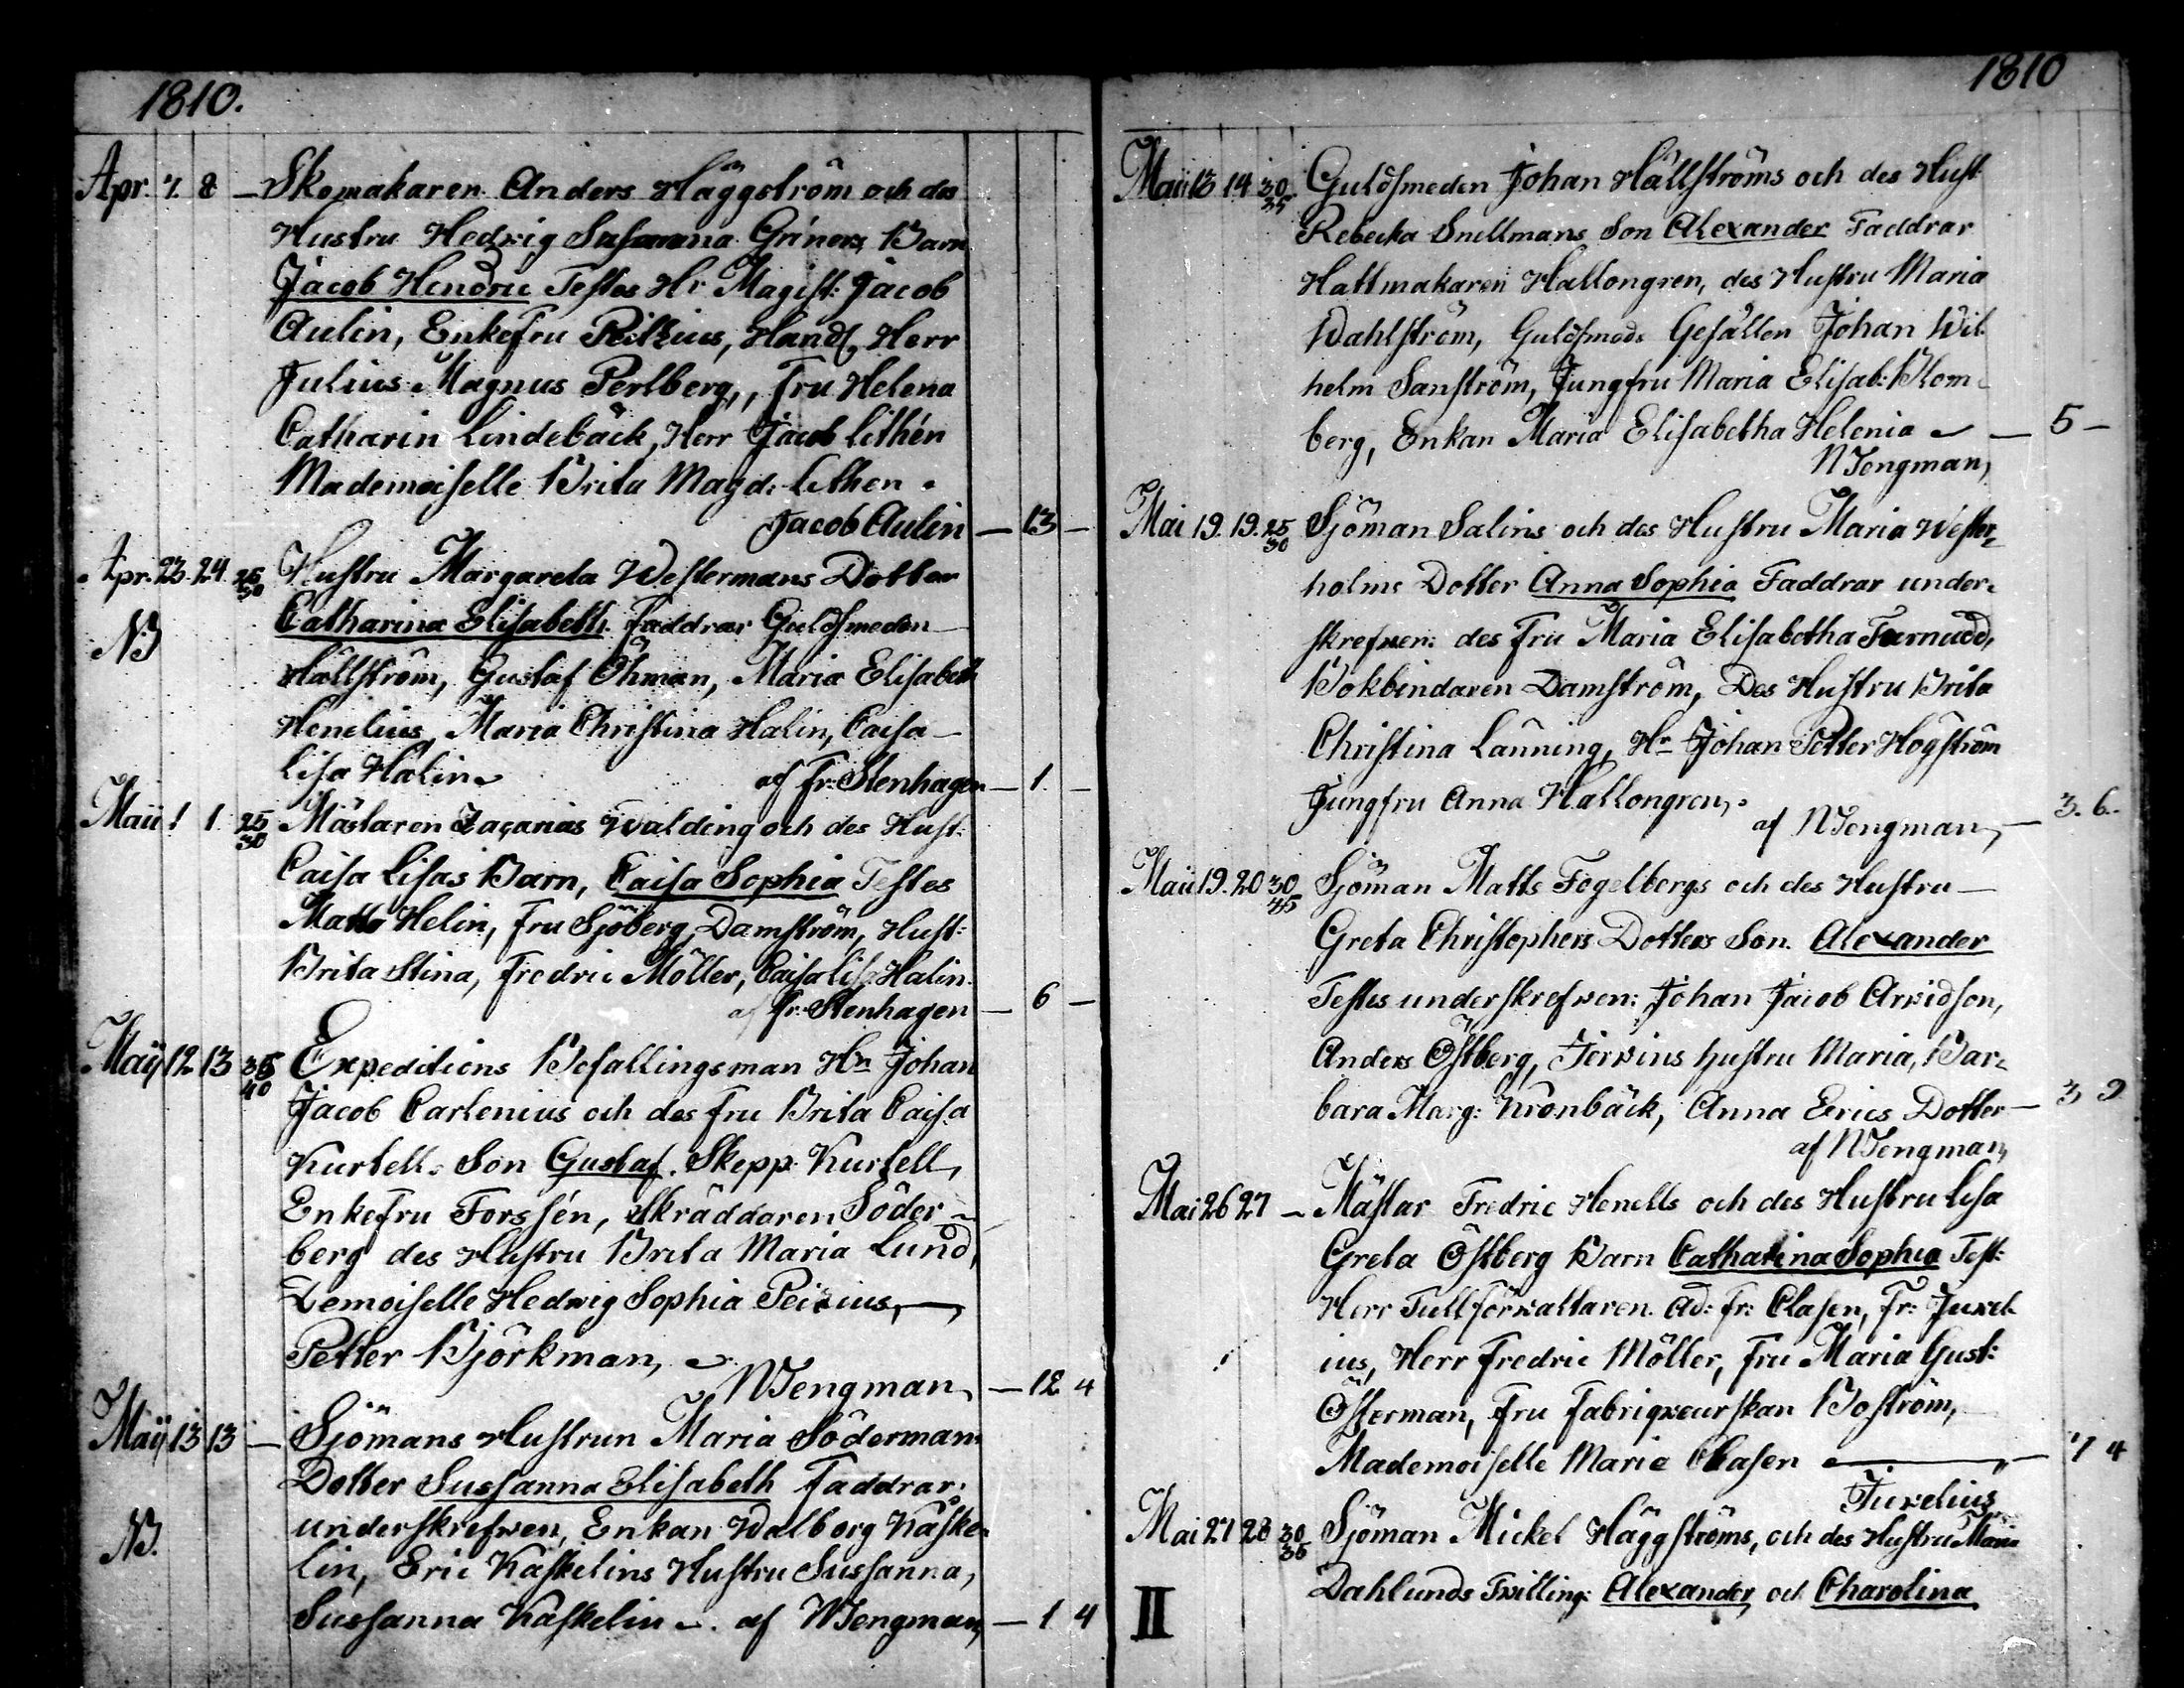 1810.
Apr. 7. 8 — Skomakaren Anders Häggström och des
Hustru Hedvig Susanna Griners Barn
Jacob Hendric Testes Hr Magist: Jacob
Aulin, Enkefru Peitzius, Handl. Herr
Julius Magnus Perlberg, Fru Helena
Catharin Lindebäck, Herr Jacob Lithén
Mademoiselle Brita Magd: Lithen.
Jacob Aulin — 13 —
Apr. 23. 24. 25 30 Hustru Margareta Westermans Dotter
NB Catharina Elisabeth. Faddrar Guldsmeden
Hällström, Gustaf Öhman, Maria Elisabeth
Henelius, Maria Christina Halin, Caisa
Lisa Halin af Fr: Stenhagen — 1. —
Maii 1 1. 25 30 Mästaren Zacarias Walding och des Hust:
Caisa Lisas Barn, Caisa Sophia Testes
Matts Helin, Fru Sjöberg, Damström, Hust:
Brita Stina, Fredric Möller, Caisa Lisa Halin.
af Fr: Stenhagen — 6 —
Maij 12 13 35 40 Expeditions Befallingsman Hr Johan
Jacob Carlenius och des Fru Brita Caisa
Kurtell. Son Gustaf. Skepp: Kurtell,
Enkefru Forssén, Skräddaren Söder-
berg des Hustru Brita Maria Lund,
Demoiselle Hedvig Sophia Peitzius, —
Petter Björkman,
N Tengman — 12 4
Maij 13 13 — Sjömans Hustrun Maria Södermans
Dotter Sussanna Elisabeth Faddrar:
NB. underskrefwen, Enkan Walborg Kaske-
lin, Eric Kaskelins Hustru Sussanna,
Sussanna Kaskelin. af N Tengman, — 1 4
1810
Maii 13 14 30 35 Guldsmeden Johan Hällströms och des Hust:
Rebecka Snellmans Son Alexander Faddrar
Hattmakaren Hallongren, des Hustru Maria
Wahlström, Guldsmeds Gesällen Johan Wil-
helm Sanström, Jungfru Maria Elisab: Blom-
berg, Enkan Maria Elisabetha Helenia — 5 —
N Tengman,
Mai 19. 19. 25 30 Sjöman Salins och des Hustru Maria Wester-
holms Dotter Anna Sophia Faddrar under-
skrefwen: des Fru Maria Elisabetha Farnudd,
Bokbindaren Damström, Des Hustru Brita
Christina Lanning, Hr Johan Petter Högström
Jungfru Anna Hallongren,
af N Tengman, — 3. 6.
Maii 19. 20 30 45 Sjöman Matts Fogelbergs och des Hustru —
Greta Christophers Dotters Son. Alexander
Testes underskrefwen: Johan Jacob Arvidson,
Anders Östberg, Jervins hustru Maria, Bar-
bara Marg: Kronbäck, Anna Erics Dotter — 3 9
af N Tengman,
Mai 26 27 — Mästar Fredric Henells och des Hustru Lisa
Greta Östberg Barn Catharina Sophia Test:
Herr Tullförvaltaren Ad: Fr: Clasen, Fr: Juvel-
ius, Herr Fredric Möller, Fru Maria Gust:
Österman, Fru Fabriqueurskan Boström,
Mademoiselle Maria Clasen — 7 4
Juvelius
Mai 27 28 30 35 Sjöman Mickel Häggströms, och des Hustru Maria
II Dahlunds Tvilling: Alexander och Charolina